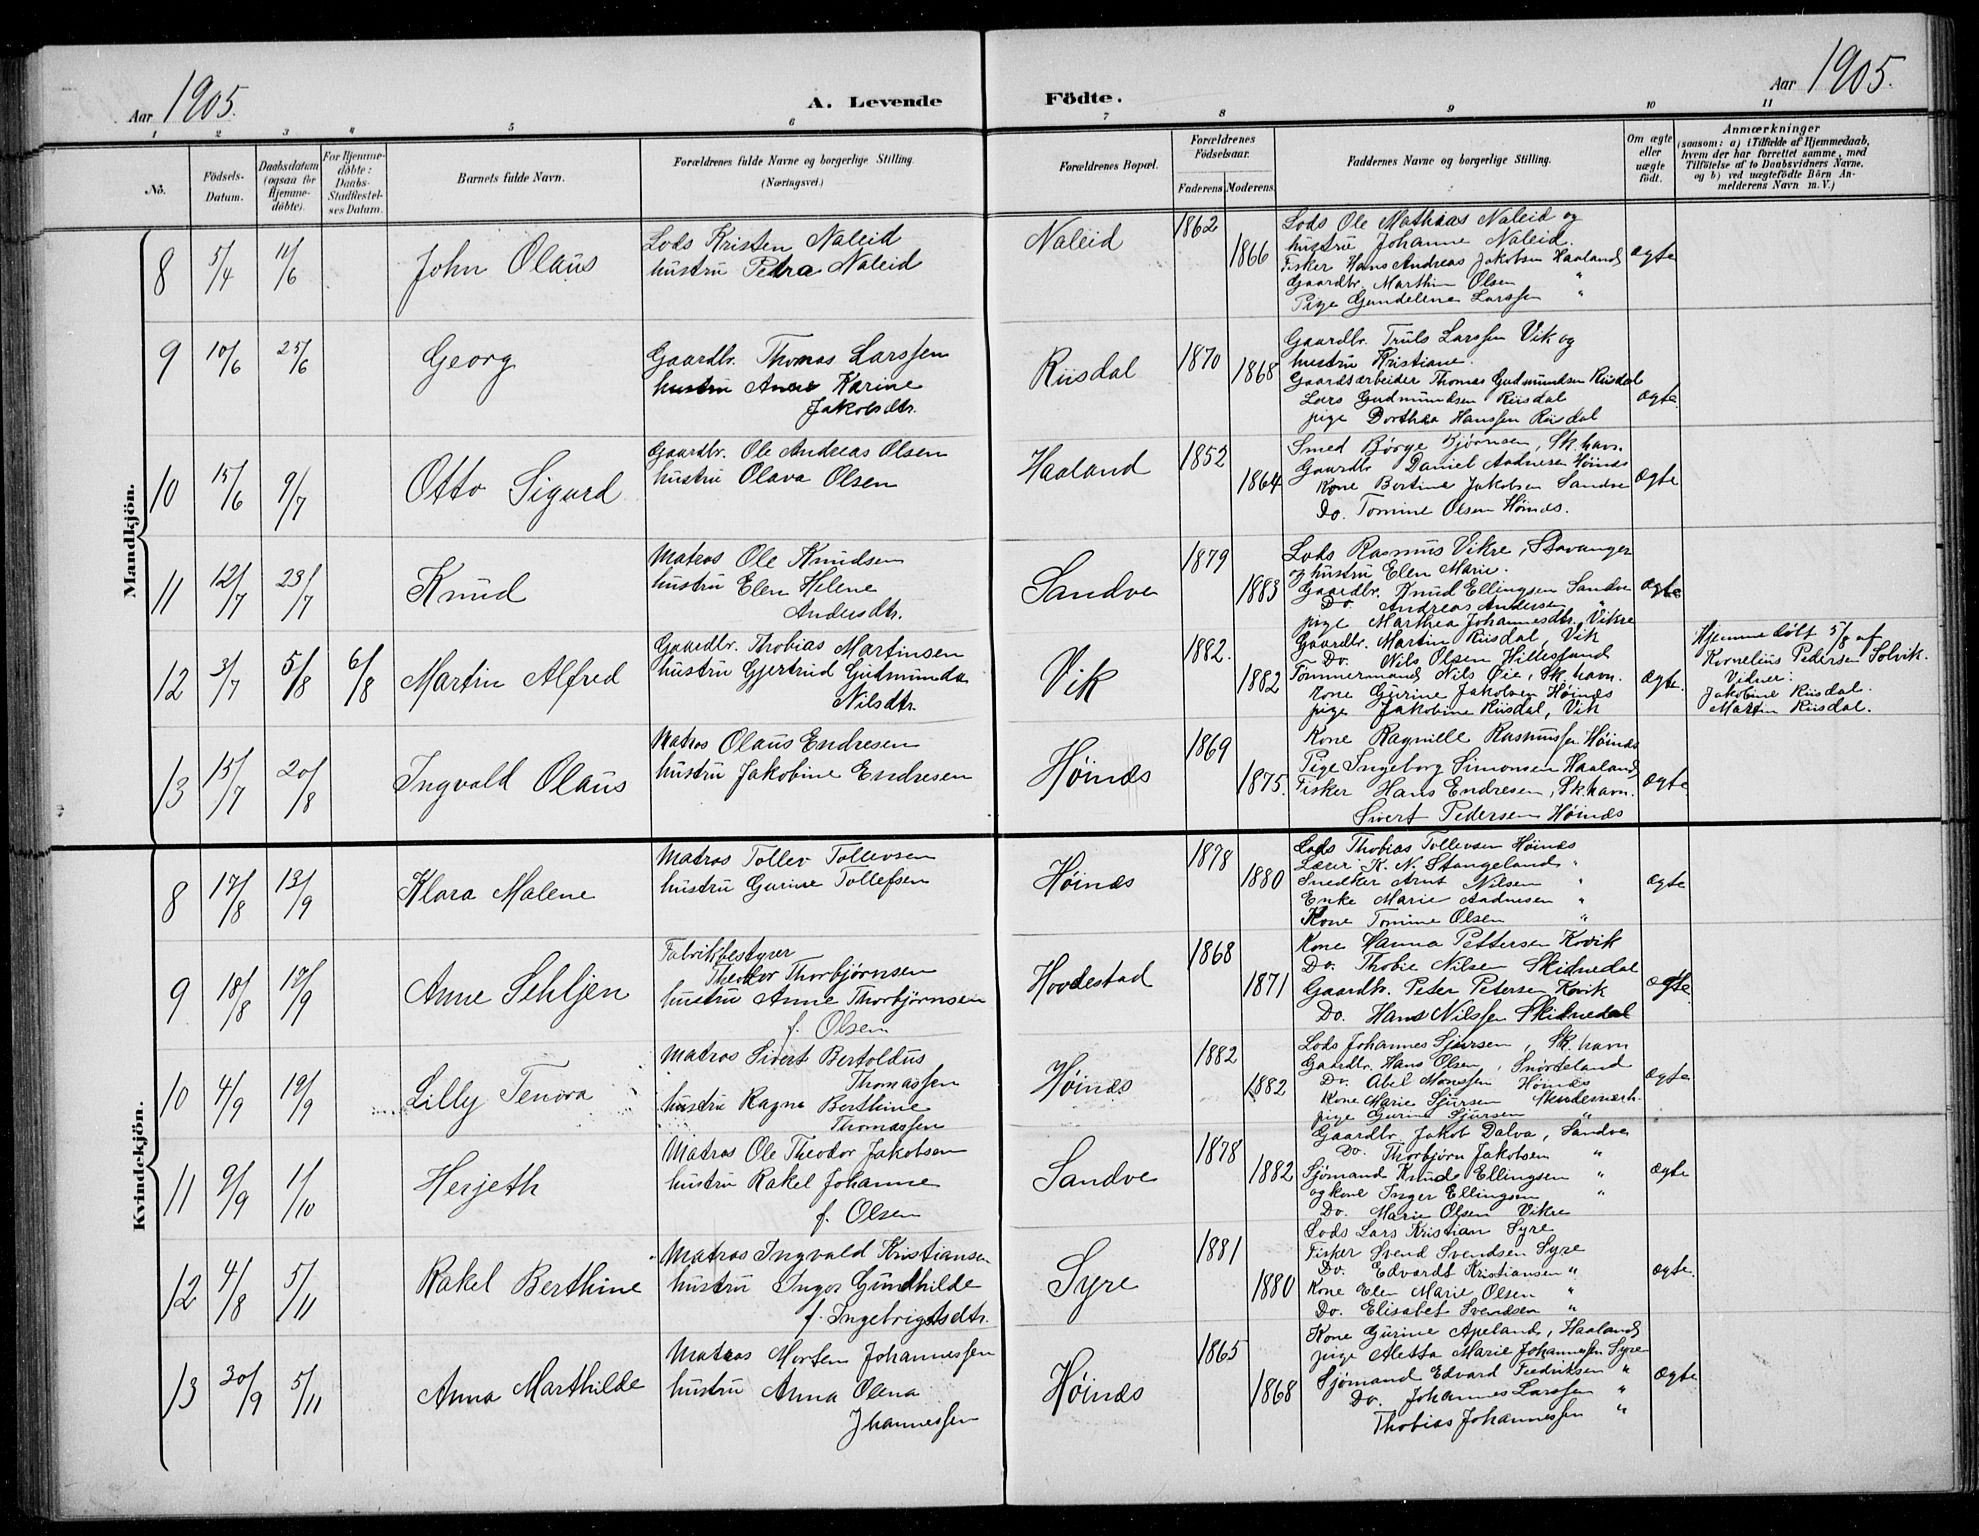 Aar 1905.
A. Levende Födte.
Aar 1905.
1 2 3 4 5 6 7 8 9 10 11
No.
Födsels-Datum.
Daabsdatum (ogsaa for Hjemme-döbte).
For Hjemme-döbte: Daabs-Stadfæstel-ses Datum.
Barnets fulde Navn.
Forældrenes fulde Navne og borgerlige Stilling.
(Næringsvei.)
Forældrenes Bopæl.
Forældrenes Födselsaar.
Faderens. Moderens.
Faddernes Navne og borgerlige Stilling.
Om ægte eller uægte födt.
Anmærkninger
(saasom: a) i Tilfælde af Hjemmedaab, hvem der har forrettet samme, med Tilföielse af to Daabsvidners Navne, og b) ved uægtefödte Börn An-melderens Navn m. V.)
Mandkjön.
8 5/4 11/6 John Olaus
Lods Kristen Naleid
hustru Petra Naleid
Naleid 1862 1866
Lods Ole Mathias Naleid og
hustru Johanne Naleid.
Fisker Hans Andreas Jakobsen Haaland
Gaardbr. Marthin Olsen "
Pige Gundeline Larssen "
ægte
9 10/6 25/6 Georg
Gaardbr. Thomas Larssen
hustru Anne Karine
Jakobsdtr.
Riisdal 1870 1868
Gaardbr. Truls Larssen Vik og
hustru Kristiane.
Gaardsarbeider Thomas Gudmundsen Riisdal
Lars Gudmundsen Riisdal
pige Dorthea Hanssen Riisdal
ægte
10 15/6 9/7 Otto Sigurd
Gaardbr. Ole Andreas Olsen
hustru Olava Olsen
Haaland 1852 1864
Smed Børge Bjørnsen, Sk.havn.
Gaardbr Daniel Aadnesen Høines
Kone Bertine Jakobsen Sandve
Do. Tomine Olsen Høines.
ægte
11 12/7 23/7 Knud
Matros Ole Knudsen
hustru Elen Helene
Andersdtr.
Sandve 1879 1883
Lods Rasmus Vikre, Stavanger
og hustru Elen Marie.
Gaardbr. Knud Ellingsen Sandve
Do. Andreas Andersen "
pige Marthea Johannesdtr, Vikre
ægte
12 3/7 5/8 6/8 Martin Alfred
Gaardbr. Thobias Martinsen
hustru Gjertrud Gudmunda
Nilsdtr.
Vik 1882. 1882
Gaardbr. Martin Riisdal, Vik
Do. Nils Olsen Hillesland
Tømmermand Nils Øie, Sk.havn.
Kone Gurine Jakobsen Høines
pige Jakobine Riisdal, Vik
ægte.
Hjemmedøbt 5/8 af
Kornelius Pedersen Solvik.
Vidner:
Jakobine Riisdal.
Martin Riisdal.
13 15/7 20/8 Ingvald Olaus
Matros Olaus Endresen
hustru Jakobine Endresen
Høines 1869 1875.
Kone Ragnille Rasmussen Høines
Pige Ingeborg Simonsen Haaland
Fisker Hans Endresen, Sk.havn.
Sivert Pedersen Høines
ægte
Kvindekjön.
8 17/8 13/9 Klara Malene
Matros Tollev Tollevsen
hustru Gurine Tollefsen
Høines 1878 1880
Lods Thobias Tollevsen Høines
Lærer K. N. Stangeland "
Snedker Arnt Nilsen "
Enke Marie Aadnesen "
Kone Tomine Olsen "
ægte
9 18/8 17/9 Anne Sehljen
Fabrikbestyrer
Theodor Thorbjørnsen
hustru Anne Thorbjørnsen
f. Olsen
Hovdestad 1868 1871
Kone Hanna Pettersen Kovik
Do. Thobie Nilsen Skidnedal
Gaardbr. Peter Petersen Kovik
Do. Hans Nilssen Skidnedal
ægte
10 4/9 19/9 Lilly Tenora
Matros Sivert Bertoldus
Thomassen
hustru Ragna Berthine
Thomassen
Høines 1882 1882
Lods Johannes Sjursen, Sk.havn
Gaardbr. Hans Olsen, Snørteland
Do. Abel Monssen Høines
Kone Marie Sjursen
pige Gurine Sjursen "
ægte
11 9/9 1/10 Herjeth
Matros Ole Theodor Jakobsen
hustru Rakel Johanne
f. Olsen
Sandve 1878 1882
Gaardbr. Jakob Dalva, Sandve
Do. Thorbjørn Jakobsen "
Sjømand Knud Ellingsen "
og kone Inger Ellingsen "
Do. Marie Olsen Vikre
ægte
12 4/8 5/11 Rakel Berthine
Matros Ingvald Kristiansen
hustru Inger Gundhilde
f. Ingebrigtsdtr.
Syre 1881 1880
Lods Lars Kristian Syre
Fisker Svend Svendsen Syre
Do. Edvardt Kristiansen "
Kone Elen Marie Olsen "
Do. Elisabet Svendsen "
ægte.
13 30/9 5/11 Anna Marthilde
Matros Morten Johannessen
hustru Anna Olena
Jhannessen
Høines 1865 1868
Kone Gurine Apeland, Haaland
pige Aletta Marie Johannessen Syre
Sjømand Edvard Fredriksen "
Do. Johannes Larssen "
Thobias Johannessen "
ægte